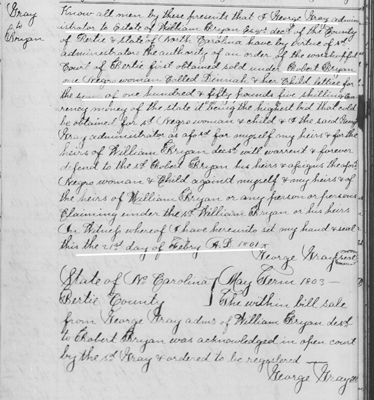 Gray
to
Bryan
Know all men by these presents that I George Gray admin
istrator to Estate of William Bryan Esqr. decd. of the County
of Bertie State of North Carolina have by virtue of sd.
administrator the authority of an order of the worshipful
Court of Bertie first obtained sold under Robert Bryan
one Negro woman Called Dinnah & her Child Lettes for
the sum of one hundred & fifty pounds five shillings Cur
rency money of the state it being the highest bid that could
be obtained for sd. Negro woman & child & I the said George
Gray administrator as aford for myself my heirs & for the
heirs of William Bryan decd. will warrent & forever
defend to the sd. Robert Bryan his heirs & assigns the afore
Negro woman & Child against myself & my heirs & of
the heirs of William Bryan or any person or persons
Claiming under the sd. William Bryan or his heirs
In Witness whereof I have herewith set my hand & seal
this the 21st day of Febry A.D. 1801
George Gray seal
State of No Carolina } May Term 1803 –
Bertie County The within bill sale
from George Gray admr. of William Bryan decd.
to Robert Bryan was acknowledged in open court
by the sd. Gray & ordered to be registered
George Gray